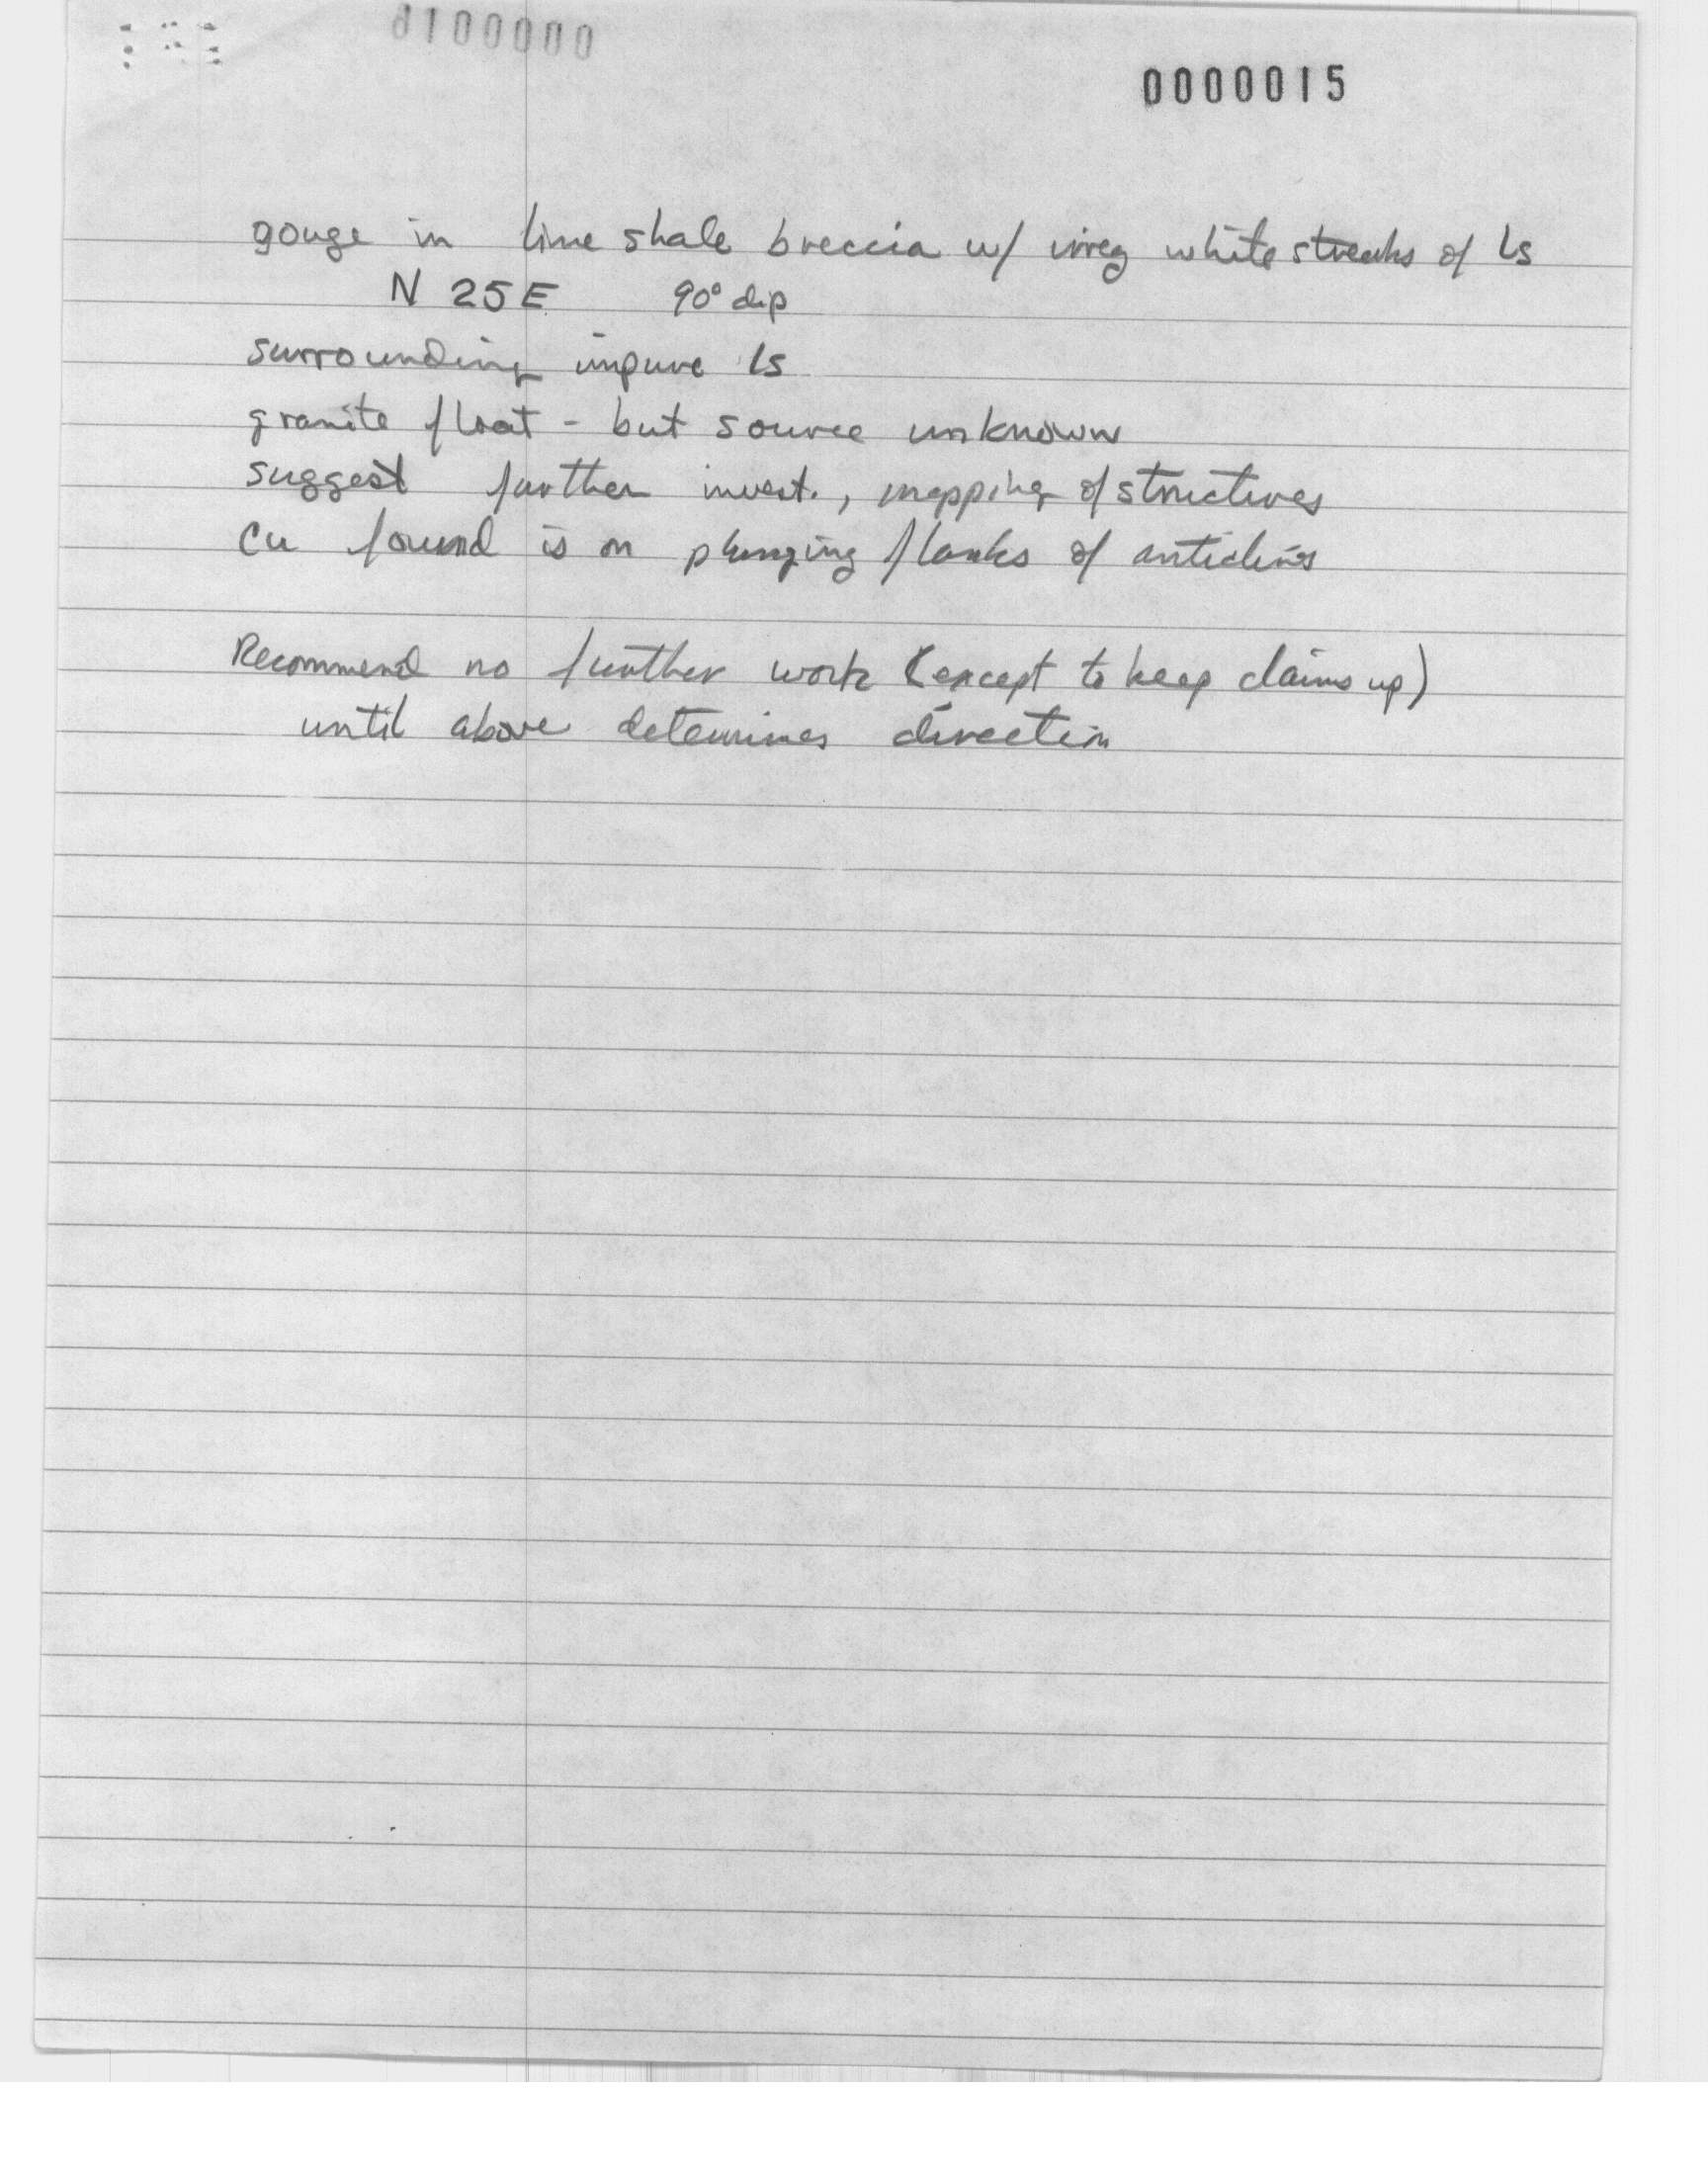 0000015
gouge in lime shale breccia w/ irreg white streaks of ls
N 25 E 90° dip
surrounding impure ls
granite float - but source unknown
suggest further invest., mapping of structures
Cu found is on plunging flanks of anticlines
Recommend no further work (except to keep claims up)
until above determines direction